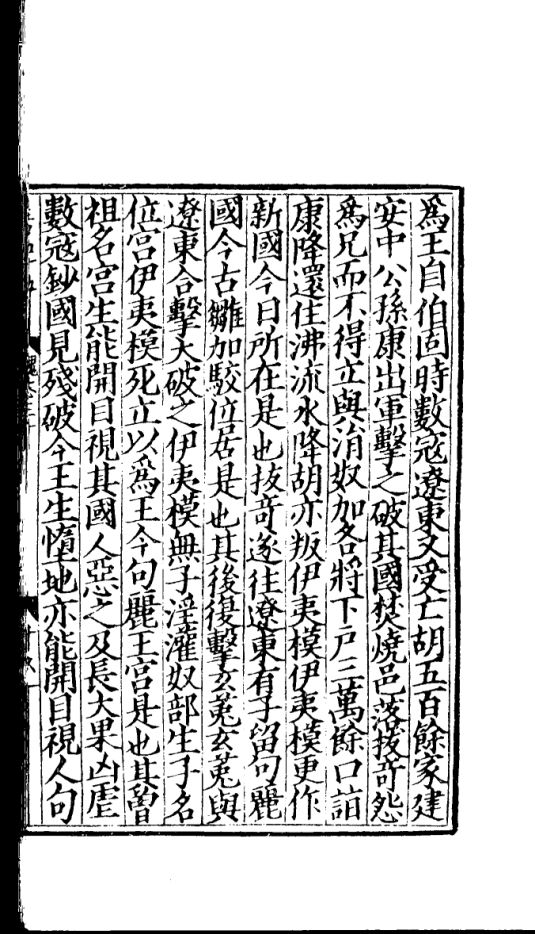 爲王自伯固時數寇遼東又受亡胡五百餘家建
安中公孫康出軍擊之破其國焚燒邑落拔竒怨
爲兄而不得立與涓奴加各將下戸三萬餘口詣
康降還住沸流水降胡亦叛伊夷模伊夷模更作
新國今日所在是也拔竒遂往遼東有子留句麗
國今古雛加駮位居是也其後復擊玄菟玄菟與
遼東合擊大破之伊夷模無子淫灌奴部生子名
位宫伊夷模死立以爲王今句麗王宫是也其曾
祖名宫生能開目視其國人惡之及長大果凶虐
數寇鈔國見殘破今王生墮地亦能開目視人句